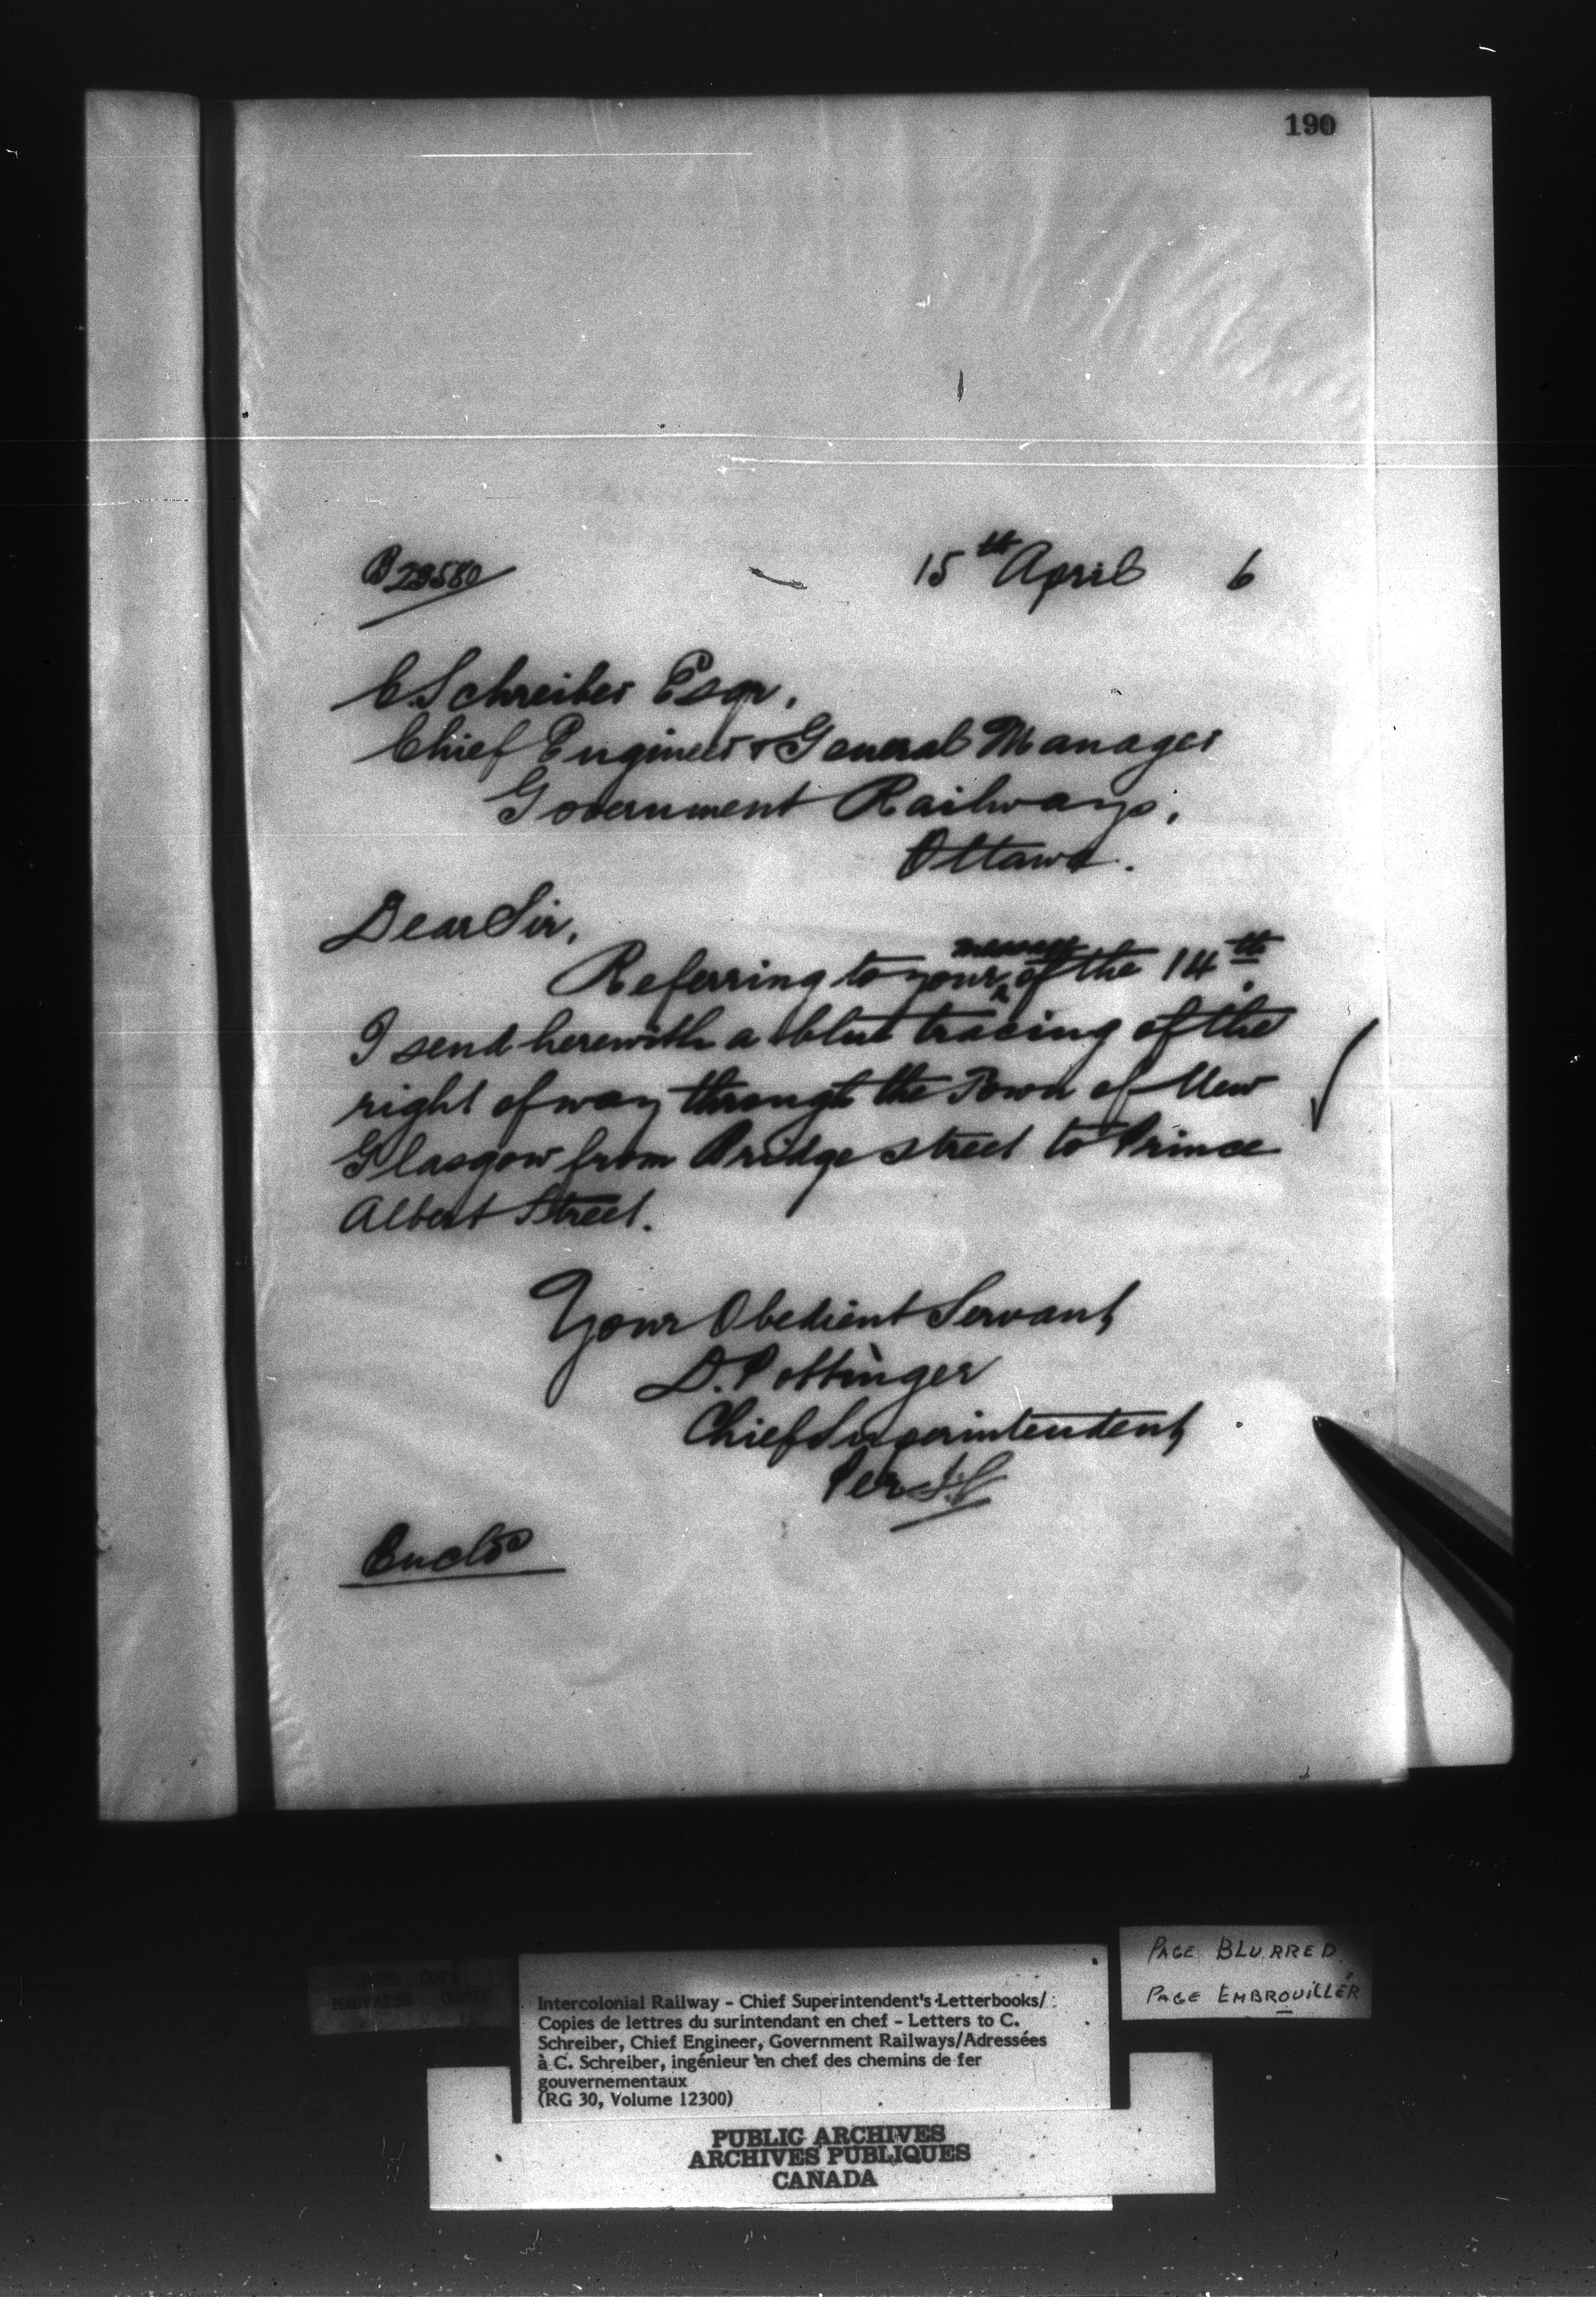 190
B 29580
15th April 6
C. Schreiber Esqr,
Chief Engineer & General Manager
Government Railways,
Ottawa.
Dear Sir,
Referring to your memo of the 14th.
I send herewith a blue tracing of the
right of way through the Town of New
Glasgow from Bridge street to Prince
Albert Street.
Your Obedient Servant,
D. Pottinger
Chief Superintendent,
Per
Enclo
PAGE BLURRED
PAGE EMBROUILLÉR
POOR COPY
MAUVAISE COPIE
Intercolonial Railway - Chief Superintendent's Letterbooks/
Copies de lettres du surintendant en chef - Letters to C.
Schreiber, Chief Engineer, Government Railways/Adressées
à C. Schreiber, ingénieur en chef des chemins de fer
gouvernementaux
(RG 30, Volume 12300)
PUBLIC ARCHIVES
ARCHIVES PUBLIQUES
CANADA